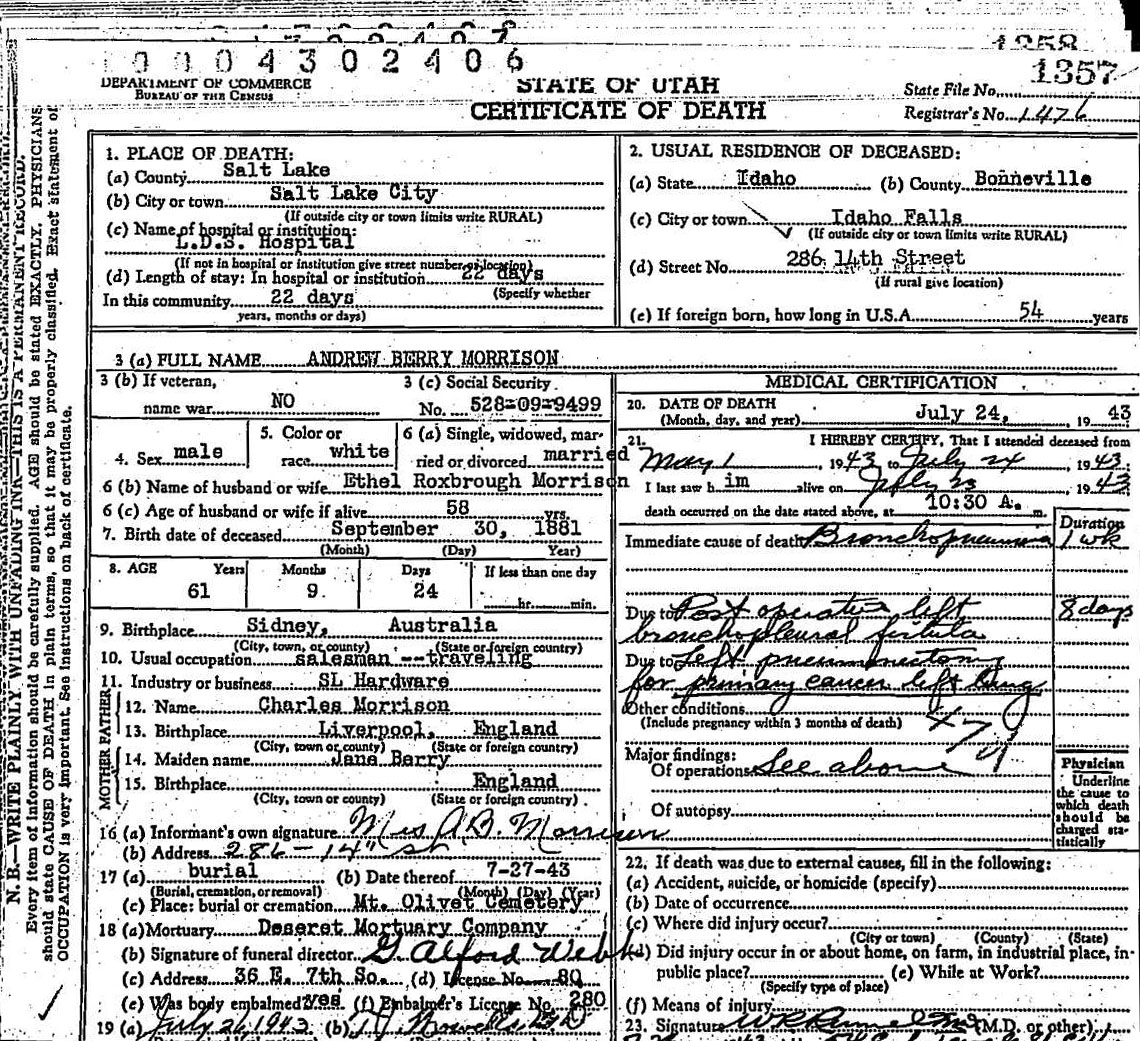 0 0 0 4 3 0 2 4 0 6
1258
1357
DEPARTMENT OF COMMERCE
BUREAU OF THE CENSUS
STATE OF UTAH
CERTIFICATE OF DEATH
State File No.
Registrar's No. 1476
N. B.—WRITE PLAINLY WITH UNFADING INK—THIS IS A PERMANENT RECORD.
Every item of information should be carefully supplied. AGE should be stated EXACTLY. PHYSICIANS
should state CAUSE OF DEATH in plain terms, so that it may be properly classified. Exact statement of
OCCUPATION is very important. See instructions on back of certificate.
1. PLACE OF DEATH:
(a) County Salt Lake
(b) City or town Salt Lake City
(If outside city or town limits write RURAL)
(c) Name of hospital or institution:
L.D.S. Hospital
(If not in hospital or institution give street number or location)
(d) Length of stay: In hospital or institution 22 days
(Specify whether
In this community 22 days
years, months or days)
2. USUAL RESIDENCE OF DECEASED:
(a) State Idaho (b) County Bonneville
(c) City or town Idaho Falls
(If outside city or town limits write RURAL)
(d) Street No. 286 14th Street
(If rural give location)
(e) If foreign born, how long in U.S.A. 54 years
3 (a) FULL NAME ANDREW BERRY MORRISON
3 (b) If veteran,
name war NO
3 (c) Social Security
No. 528-09-9499
4. Sex male
5. Color or
race white
6 (a) Single, widowed, mar-
ried or divorced married
6 (b) Name of husband or wife Ethel Roxbrough Morrison
6 (c) Age of husband or wife if alive 58 yrs.
7. Birth date of deceased September 30, 1881
(Month) (Day) Year)
8. AGE Years Months Days If less than one day
61 9 24 hr. min.
9. Birthplace Sidney, Australia
(City, town, or county) (State or foreign country)
10. Usual occupation salesman --traveling
11. Industry or business SL Hardware
FATHER
12. Name Charles Morrison
13. Birthplace Liverpool, England
(City, town or county) (State or foreign country)
MOTHER
14. Maiden name Jane Berry
15. Birthplace England
(City, town or county) (State or foreign country)
16 (a) Informant's own signature Mrs A. B. Morrison
(b) Address 286 - 14" St.
17 (a) burial (b) Date thereof 7-27-43
(Burial, cremation, or removal) (Month) (Day) (Year)
(c) Place: burial or cremation Mt. Olivet Cemetery
18 (a) Mortuary Deseret Mortuary Company
(b) Signature of funeral director G. Alford Webb
(c) Address 36 E. 7th So. (d) License No. 80
(e) Was body embalmed? Yes (f) Embalmer's License No. 280
19 (a) July 26, 1943 (b)
MEDICAL CERTIFICATION
20. DATE OF DEATH
(Month, day, and year) July 24, 19 43
21. I HEREBY CERTIFY, That I attended deceased from
May 1, 1943 to July 24, 1943.
I last saw him alive on July 23, 1943
death occurred on the date stated above, at 10:30 A. m.
Duration
Immediate cause of death Bronchopneumonia 1 wk
Due to Post operative left 8 days
bronchopleural fistula
Due to Left pneumonectomy
for primary cancer left lung
Other conditions
(Include pregnancy within 3 months of death)
Major findings:
Of operations See above
Of autopsy
Physician
Underline
the cause to
which death
should be
charged sta-
tistically
22. If death was due to external causes, fill in the following:
(a) Accident, suicide, or homicide (specify)
(b) Date of occurrence
(c) Where did injury occur?
(City or town) (County) (State)
(d) Did injury occur in or about home, on farm, in industrial place, in-
public place? (e) While at Work?
(Specify type of place)
(f) Means of injury
23. Signature (M.D. or other)